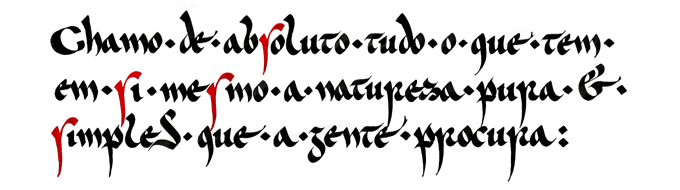 Chamo·de·abſoluto·tudo·o·que·tem·
em·ſi·meſmo·a·natureza·pura·&·
ſimples·que·a·gente·procura: